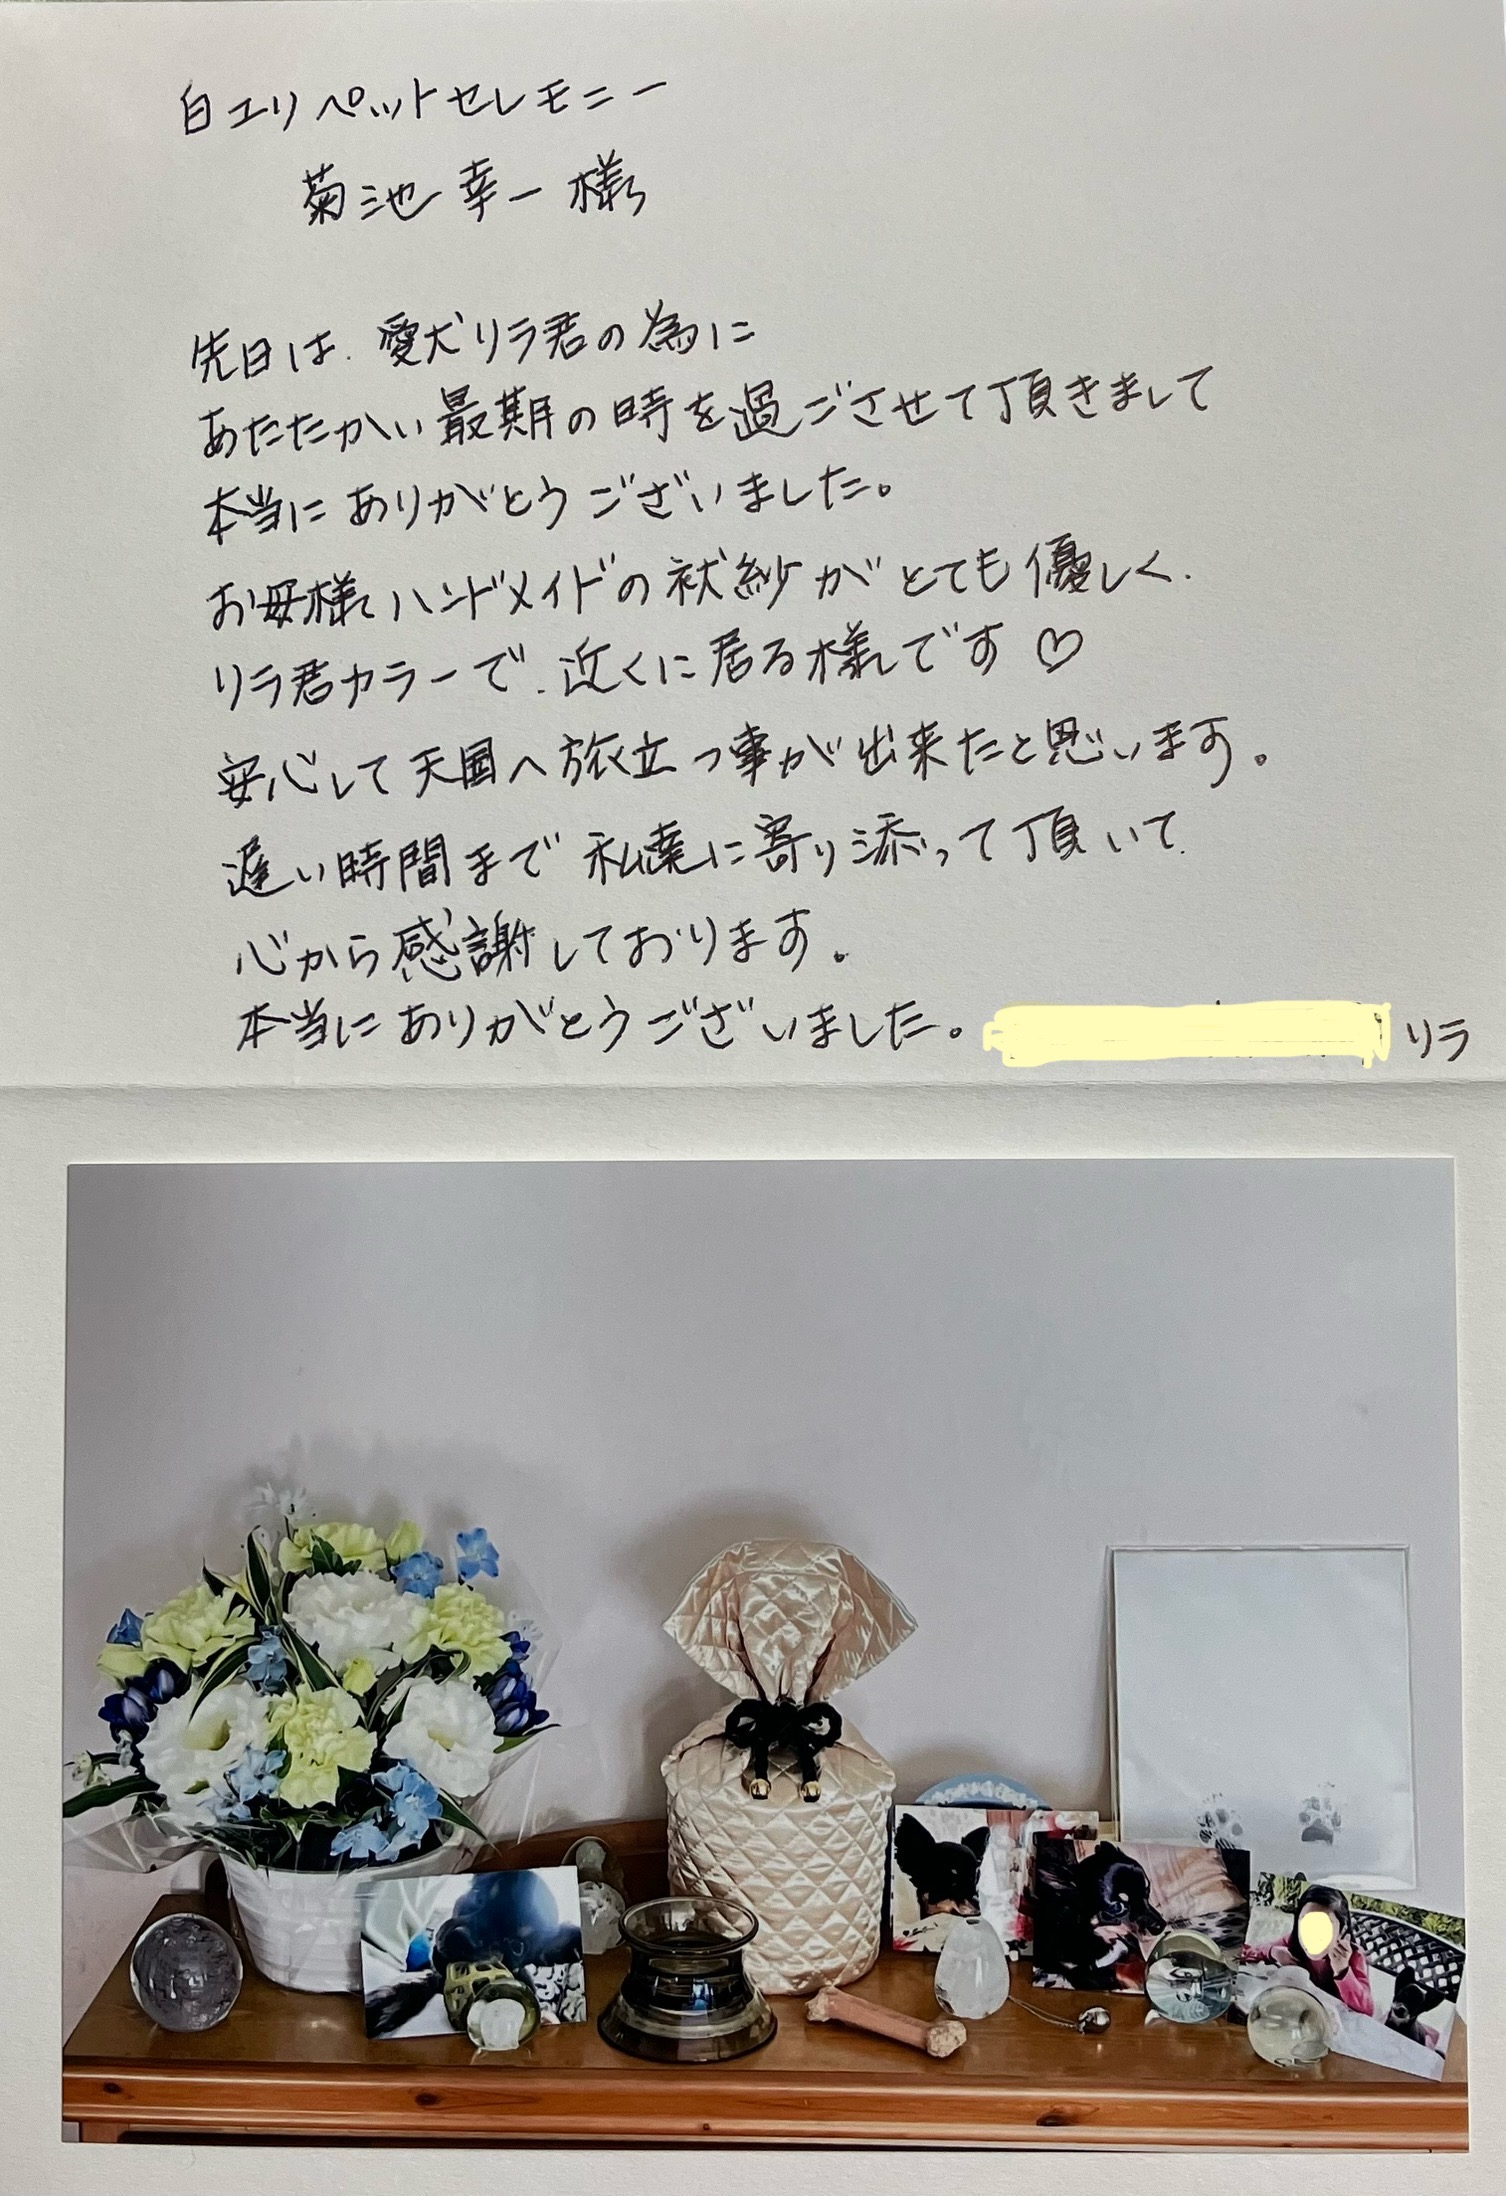 白エリペットセレモニー
菊池幸一様
先日は、愛犬リラ君の為に
あたたかい最期の時を過ごさせて頂きまして
本当にありがとうございました。
お母様ハンドメイドの袱紗がとても優しく、
リラ君カラーで、近くに居る様です♡
安心して天国へ旅立つ事が出来たと思います。
遅い時間まで私達に寄り添って頂いて、
心から感謝しております。
本当にありがとうございました。 リラ